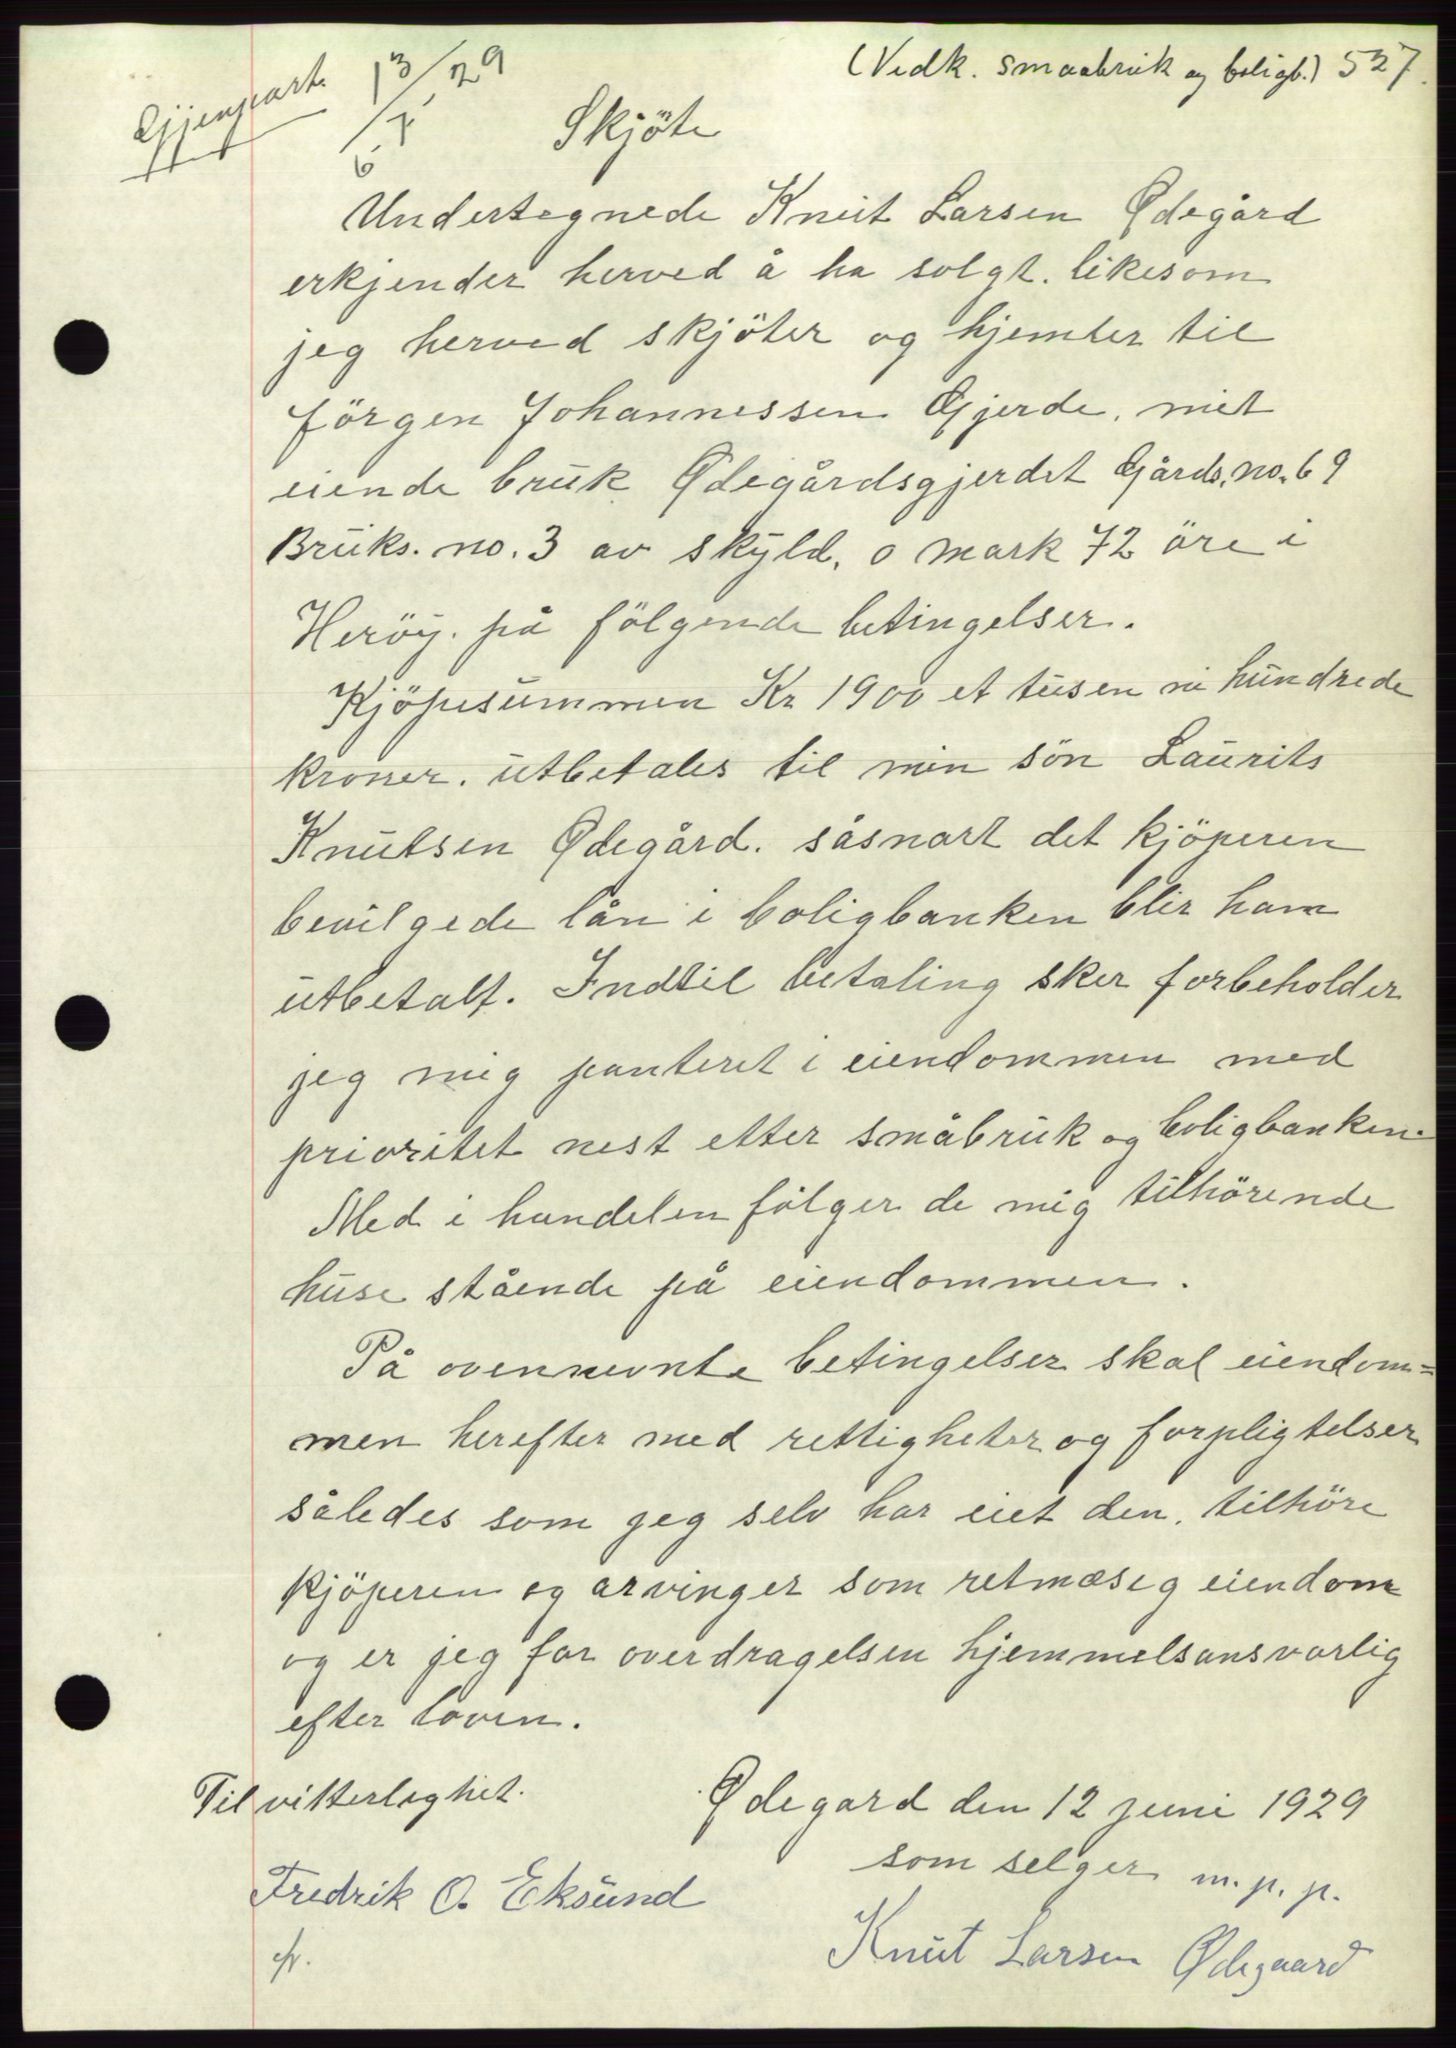 (Vedk. smaabruk og boligb.) 527.
Gjenpart.
Skjöte
Undertegnede Knut Larsen Ødegård
erkjender herved å ha solgt. likesom
jeg herved skjöter og hjemler til
Jörgen Johannessen Gjerde, mit
eiende bruk Ødegårdsgjerdet Gårds. no. 69
Bruks. no. 3 av skyld, 0 mark 72 öre i
Heröy. på fölgende betingelser.
Kjöpesummen Kr 1900 et tusen ni hundrede
kroner. utbetales til min sön Laurits
Knutsen Ødegård. såsnart det kjöperen
bevilgede lån i boligbanken blir ham
utbetalt. Indtil betaling sker forbeholder
jeg mig panteret i eiendommen med
prioritet nest etter småbruk og boligbanken.
Med i handelen fölger de mig tilhörende
huse stående på eiendommen.
På ovennevnte betingelser skal eiendom=
men herefter med rettigheter og forpligtelser
således som jeg selv har eiet den, tilhöre
kjöperen og arvinger som retmæsig eiendom
og er jeg for overdragelsen hjemmelsansvarlig
efter loven.
Til vitterlighet.
Ødegard den 12 juni 1929
som selger m. p. p.
Fredrik O. Eksund
Knut Larsen Ødegaard